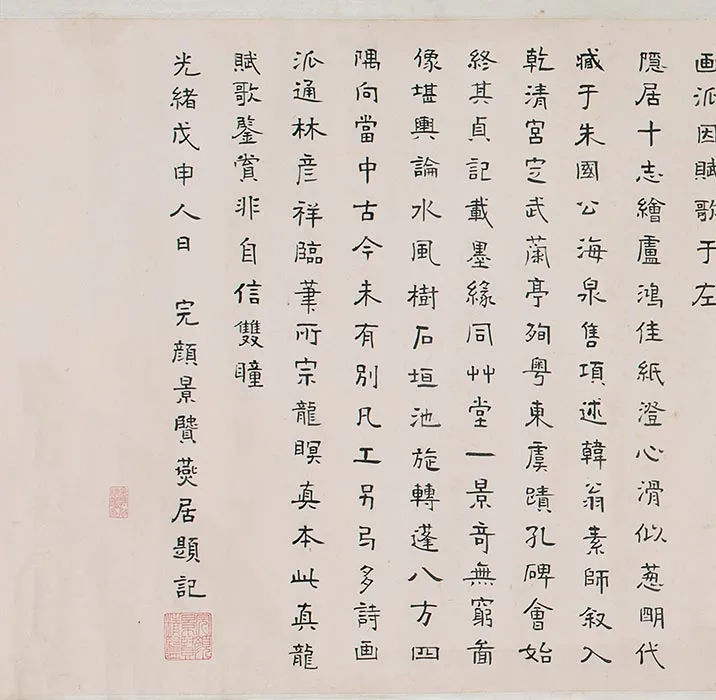 画派因賦歌于左
隱居十志繪盧鴻佳紙澄心滑似蔥明代
臧于朱國公海泉售項述韓翁素師叙入
乾清宮定武蘭亭殉粵東虞蹟孔碑會始
終其貞記載墨緣同艸堂一景奇無窮啚
像堪輿論水風樹石垣池旋轉蓬八方四
隅向當中古今未有別凡工另多詩画
派通林彥祥臨筆所宗龍瞑真本此真龍
賦歌鑒賞非自信雙瞳
光緒戊申人日 完顏景贒燕居題記